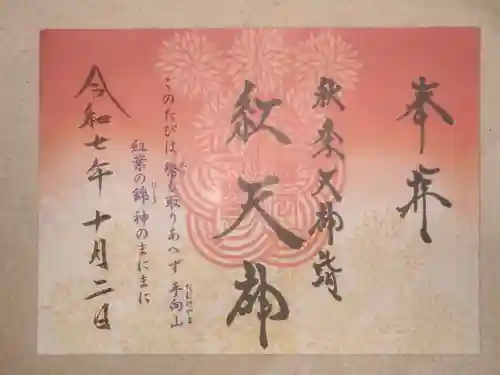 奉拝
秋季天神講
秋天神
このたびは 幣も取りあへず 手向山
紅葉の錦 神のまにまに
令和七年十月二日